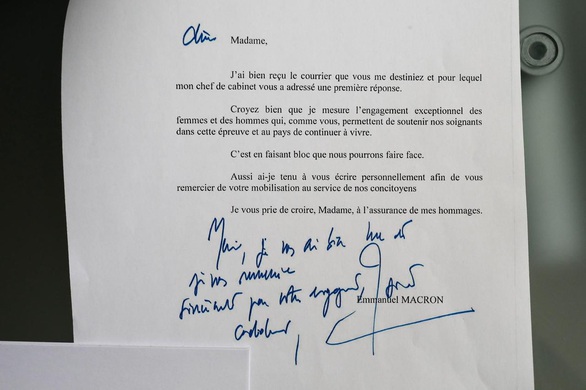 Chère Madame,
J'ai bien reçu le courrier que vous me destiniez et pour lequel
mon chef de cabinet vous a adressé une première réponse.
Croyez bien que je mesure l'engagement exceptionnel des
femmes et des hommes qui, comme vous, permettent de soutenir nos soignants
dans cette épreuve et au pays de continuer à vivre.
C'est en faisant bloc que nous pourrons faire face.
Aussi ai-je tenu à vous écrire personnellement afin de vous
remercier de votre mobilisation au service de nos concitoyens
Je vous prie de croire, Madame, à l'assurance de mes hommages.
Merci, je vous ai bien lue et
je vous remercie
sincèrement pour votre engagement,
Emmanuel MACRON